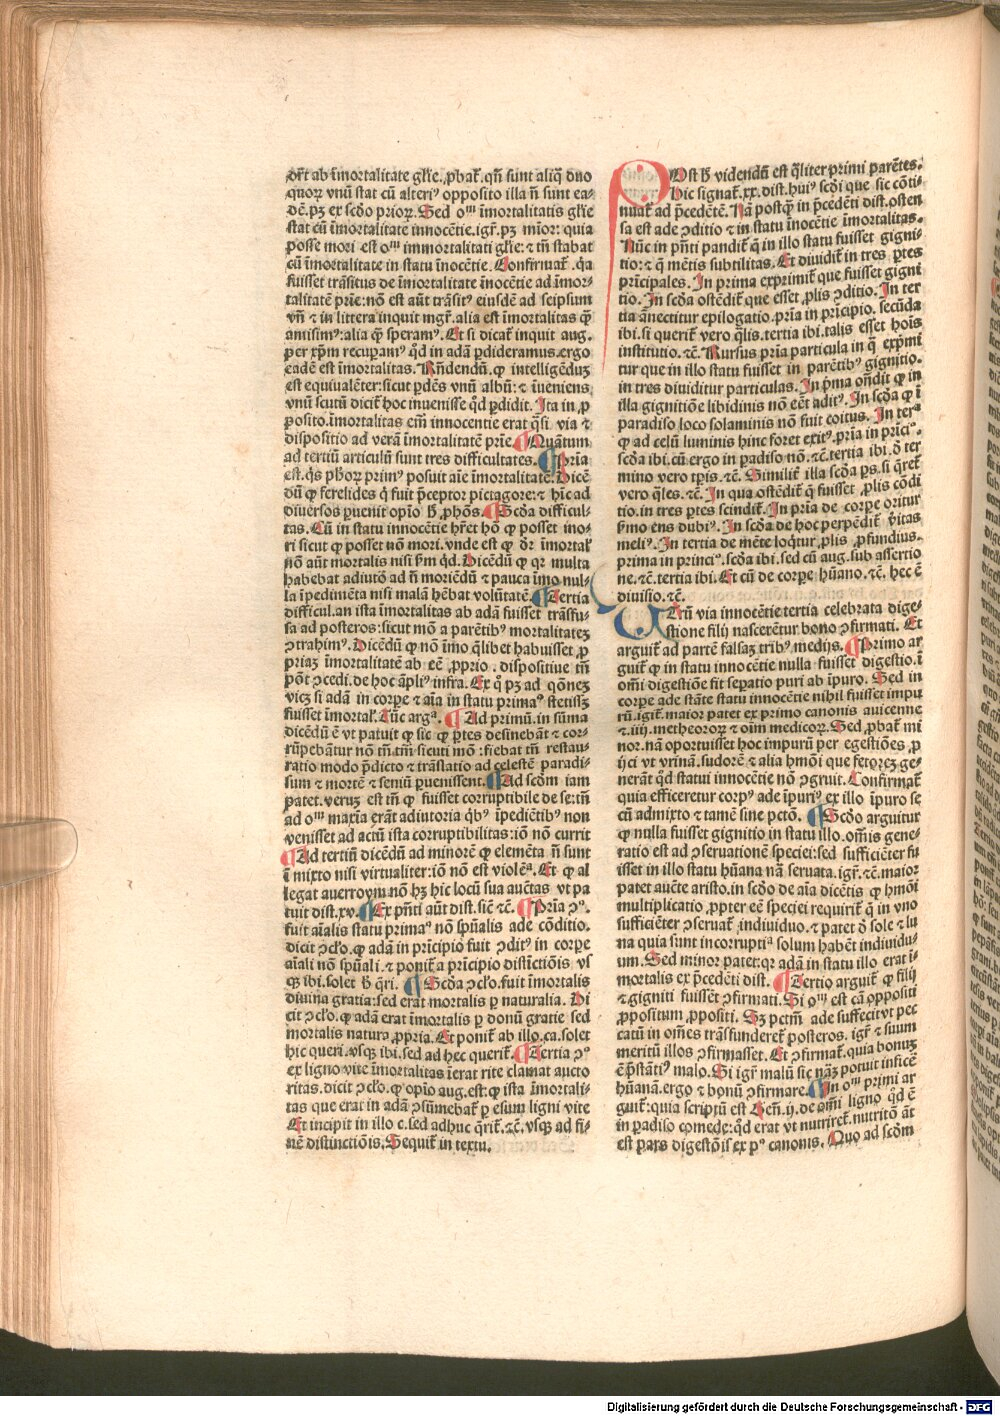 dr̃t ab īmortalitate gl'ie. ꝓbat̃. qñ sunt aliq̄ duo
quoꝝ vnū stat cū alteriꝰ opposito illa ñ sunt ea-
dē. pꝫ ex scd̃o prioꝝ. Sed oᵐ īmortalitatis gl'ie
stat cū īmortalitate innocētie. igr̃. pꝫ mīor: quia
posse mori est oᵐ immortalitati gl'ie: ⁊ tñ stabat
cū īmortalitate in statu īnocētie. Confirmat̃. qa
fuisset trāsitus de īmortalitate īnocētie ad īmor-
talitatē prīe: nō est aūt trāsitꝰ eiusdē ad seipsum
vñ ⁊ in littera inquit mgr̃. alia est īmortalitas q̄
amisimꝰ: alia q̄ speramꝰ. Et si dicat̃ inquit aug.
per xp̄m recuꝑamꝰ qd̃ in adā ꝑdideramus. ergo
eadē est īmortalitas. Rñdendū. ꝙ intelligēduꝫ
est equiualēter: sicut ꝑdēs vnū albū: ⁊ īueniens
vnū scutū dicit̃ hoc inuenisse qd̃ ꝑdidit. Ita in ꝓ
posito. īmortalitas em̄ innocentie erat q̄si via ⁊
dispositio ad verā īmortalitatē prīe. ¶ Quātum
ad tertiū articulū sunt tres difficultates. ¶ Prīa
est. q̄s ph̄oꝝ primꝰ posuit aīe īmortalitatē. Dicē
dū ꝙ ferelides q̄ fuit p̄ceptor pictagore: ⁊ hīc ad
diuersos ꝑuenit opīo h̄ ꝓhōs. ¶ Scd̃a difficul-
tas. Cū in statu innocētie hr̄et hō ꝙ posset mo-
ri sicut ꝙ posset nō mori. vnde est ꝙ dr̄ īmortal'
nō aūt mortalis nisi ẜm qd̃. Dicēdū ꝙ qꝛ multa
habebat adiutō ad ñ moriēdū ⁊ pauca īmo nul-
la īpedimēta nisi malā hēbat volūtatē. ¶ Tertia
difficul. an ista īmortalitas ab adā fuisset trāsfu-
sa ad posteros: sicut mō a parētibꝰ mortalitateꝫ
ꝯtrahimꝰ. Dicēdū ꝙ nō īmo q̄libet habuisset ꝓ
priaꝫ īmortalitatē ab eē ꝓprio. dispositiue tñ
pōt ꝯcedi. de hoc āpliꝰ infra. Ex q̄ pꝫ ad qōneꝫ
vicꝫ si adā in corpe ⁊ aīa in statu primaᵒ stetissꝫ
fuisset īmortal'. Tūc argᵃ. ¶ Ad primū. in sūma
dicēdū ē vt patuit ꝙ sic ꝙ ꝑtes desinebāt ⁊ cor-
rūpebātur nō tñ tm̄ sicuti mō: fiebat tñ restau-
ratio modo p̄dicto ⁊ trāslatio ad celestē paradi-
sum ⁊ mortē ⁊ seniū p̄uenissent. ¶ Ad scd̄m iam
patet. veruꝫ est tñ ꝙ fuisset corruptibile de se: tñ
ad oᵐ maxīa erāt adiutoria qbꝰ īpediētibꝰ non
venisset ad actū ista corruptibilitas: iō nō currit
¶ Ad tertiū dicēdū ad minorē ꝙ elemēta ñ sunt
ī mixto nisi virtualiter: iō nō est violēᵃ. Et ꝙ al
legat auerroym nō hꝫ hic locū sua auctas vt pa-
tuit dist. xv. ¶ Ex p̄nti aūt dist. sic̄ ⁊c̄. ¶ Prīa ꝯᵒ.
fuit aīalis statu primaᵒ nō spūalis ade cōditio.
dicit ꝯcl'o. ꝙ adā in prīcipio fuit ꝯditꝰ in corpe
aīali nō spūali. ⁊ ponit̃ a prīcipio distīctiōis vs
qꝫ ibi. solet h̄ q̄ri. ¶ Scd̃a ꝯcl'o. fuit īmortalis
diuina gratia: sed erat mortalis ꝑ naturalia. Di
cit ꝯcl'o. ꝙ adā erat īmortalis ꝑ donū gratie sed
mortalis natura ꝓpria. Et ponit̃ ab illo. ca. solet
hic queri. vsqꝫ ibi. sed ad hec querit̃. ¶ Tertia ꝯᵒ
ex ligno vite īmortalitas īerat rite clamat aucto
ritas. dicit ꝯcl'o. ꝙ opīo aug. est. ꝙ ista īmortali-
tas que erat in adā ꝯsūmebat̃ ꝑ esum ligni vite
Et incipit in illo c. sed adhuc q̄rit̃. ⁊c̄. vsqꝫ ad fi-
nē distinctiōis. Sequit̃ in textu.
POst h̄ videndū est q̄liter primi parētes.
hic signat̃. xx. dist. huiꝰ scd̃i que sic cōti-
nuat̃ ad p̄cedētē. Nā postq̄ꝫ in p̄cedēti dist. ostēn
sa est ade ꝯditio ⁊ in statu īnocētie īmortalitas.
Nūc in p̄nti pandit̃ q̄ in illo statu fuisset gigni-
tio: ⁊ q̄ mētis subtilitas. Et diuidit̃ in tres ꝑtes
prīcipales. In prima exprimit̃ que fuisset gigni
tio. In scd̃a ostēdit̃ que esset ꝓlis ꝯditio. In ter
tia ānectitur epilogatio. prīa in prīcipio. secūda
ibi. si querit̃ vero q̄lis. tertia ibi. talis esset hoīs
institutio. ⁊c̄. Rursus prīa particula in q̄ exp̄mi
tur que in illo statu fuisset in parētibꝰ gignitio.
in tres diuiditur particulas. In p̄ma oñdit ꝙ in
illa gignitiōe libidinis nō eēt aditꝰ. In scd̃a ꝙ ī
paradiso loco solaminis nō fuit coitus. In terᵃ
ꝙ ad celū luminis hinc foret exitꝰ. prīa in prīciᵒ.
scd̃a ibi. cū ergo in padiso nō. ⁊c̄. tertia ibi. d̄ ter
mino vero tꝑis. ⁊c̄. Similit̃ illa scd̃a ꝑs. si q̄ret̃
vero q̄les. ⁊c̄. In qua ostēdit̃ q̄ fuisset ꝓlis cōdi
tio. in tres ꝑtes scindit̃. In prīa de corpe oritur
ẜmo ens dubiꝰ. In scd̃a de hoc perpēdit̃ v̄itas
meliꝰ. In tertia de mēte loq̄tur ꝓlis ꝓfundius.
prima in princiᵒ. scd̃a ibi. sed cū aug. sub assertio
ne. ⁊c̄. tertia ibi. Et cū de corpe hūano. ⁊c̄. hec ē
diuisio. ⁊c̄.
UTrū via innocētie tertia celebrata dige-
stione filij nascerētur bono ꝯfirmati. Et
arguit̃ ad partē falsaꝫ tribꝰ medijs. ¶ Primo ar
guit̃ ꝙ in statu innocētie nulla fuisset digestio. ī
om̄i digestiōe fit seꝑatio puri ab īpuro. Sed in
corpe ade stāte statu innocētie nihil fuisset impu
rū. igit̃. maior patet ex primo canonis auicenne
⁊ .iiij. metheoroꝝ ⁊ oīm medicoꝝ. Sed ꝓbat̃ mi
nor. nā oportuisset hoc impurū per egestiōes ꝓ
ijci vt vrinā. sudorē ⁊ alia hmōi que fetoreꝫ ge-
nerāt qd̃ statui innocētie nō ꝯgruit. Confirmat̃
quia efficeretur corpꝰ ade īpuriꝰ ex illo īpuro se
cū admixto ⁊ tamē sine pctō. ¶ Scd̃o arguitur
ꝙ nulla fuisset gignitio in statu illo. om̄is gene-
ratio est ad ꝯseruationē speciei: sed sufficiēter fu
isset in illo statu hūana nā seruata. igr̃. ⁊c̄. maior
patet auctē aristo. in scd̃o de aīa dicētis ꝙ hmōi
multiplicatio ꝓpter eē speciei requirit̃ q̄ in vno
sufficiēter ꝯseruat̃ indiuiduo. ⁊ patet d̄ sole ⁊ lu
na quia sunt incorruptiᵃ solum habēt indiuidu-
um. Sed minor patet: qꝛ adā in statu illo erat ī-
mortalis ex p̄cedēti dist. ¶ Tertio arguit̃ ꝙ filij
⁊ gigniti fuissēt ꝯfirmati. Si oᵐ est cā oppositi
ꝓpositum ꝓpositi. Sꝫ pctm̄ ade suffecit vt pec
catū in om̄es trāsfunderet̃ posteros. igr̃ ⁊ suum
meritū illos ꝯfirmasset. Et ꝯfirmat̃. quia bonuꝫ
ē p̄stātiꝰ malo. Si igr̃ malū sic nāꝫ potuit inficē
hūanā. ergo ⁊ bonū ꝯfirmare. ¶ In oᵐ primi ar
guit̃: quia scriptū est Geñ. ij. de om̄i ligno qd̃ ē
in ꝑadiso comede: qd̃ erat vt nutriret̃. nutritō āt
est ꝑars digestōis ex pᵒ canonis. Quo ad scd̄m
Digitalisierung gefördert durch die Deutsche Forschungsgemeinschaft - DFG